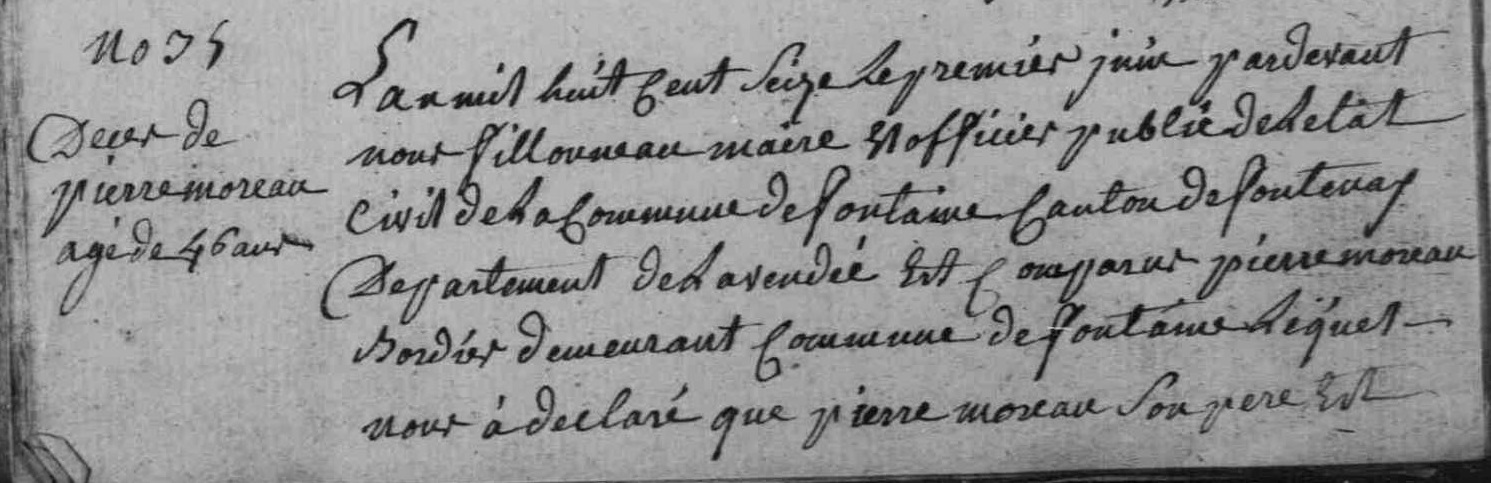 No 35
Deces de
pierre moreau
agé de 46 ans
L'an mil huit Cent Seize Le premier juin pardevant
nous fillonneau maire Et officier public de L'etat
Civil de La Commune de fontaine Canton de fontenay
Departement de La vendée Est Comparus pierre moreau
Bordier demeurant Commune de fontaine Lequel
nous à declaré que pierre moreau Son pere Est